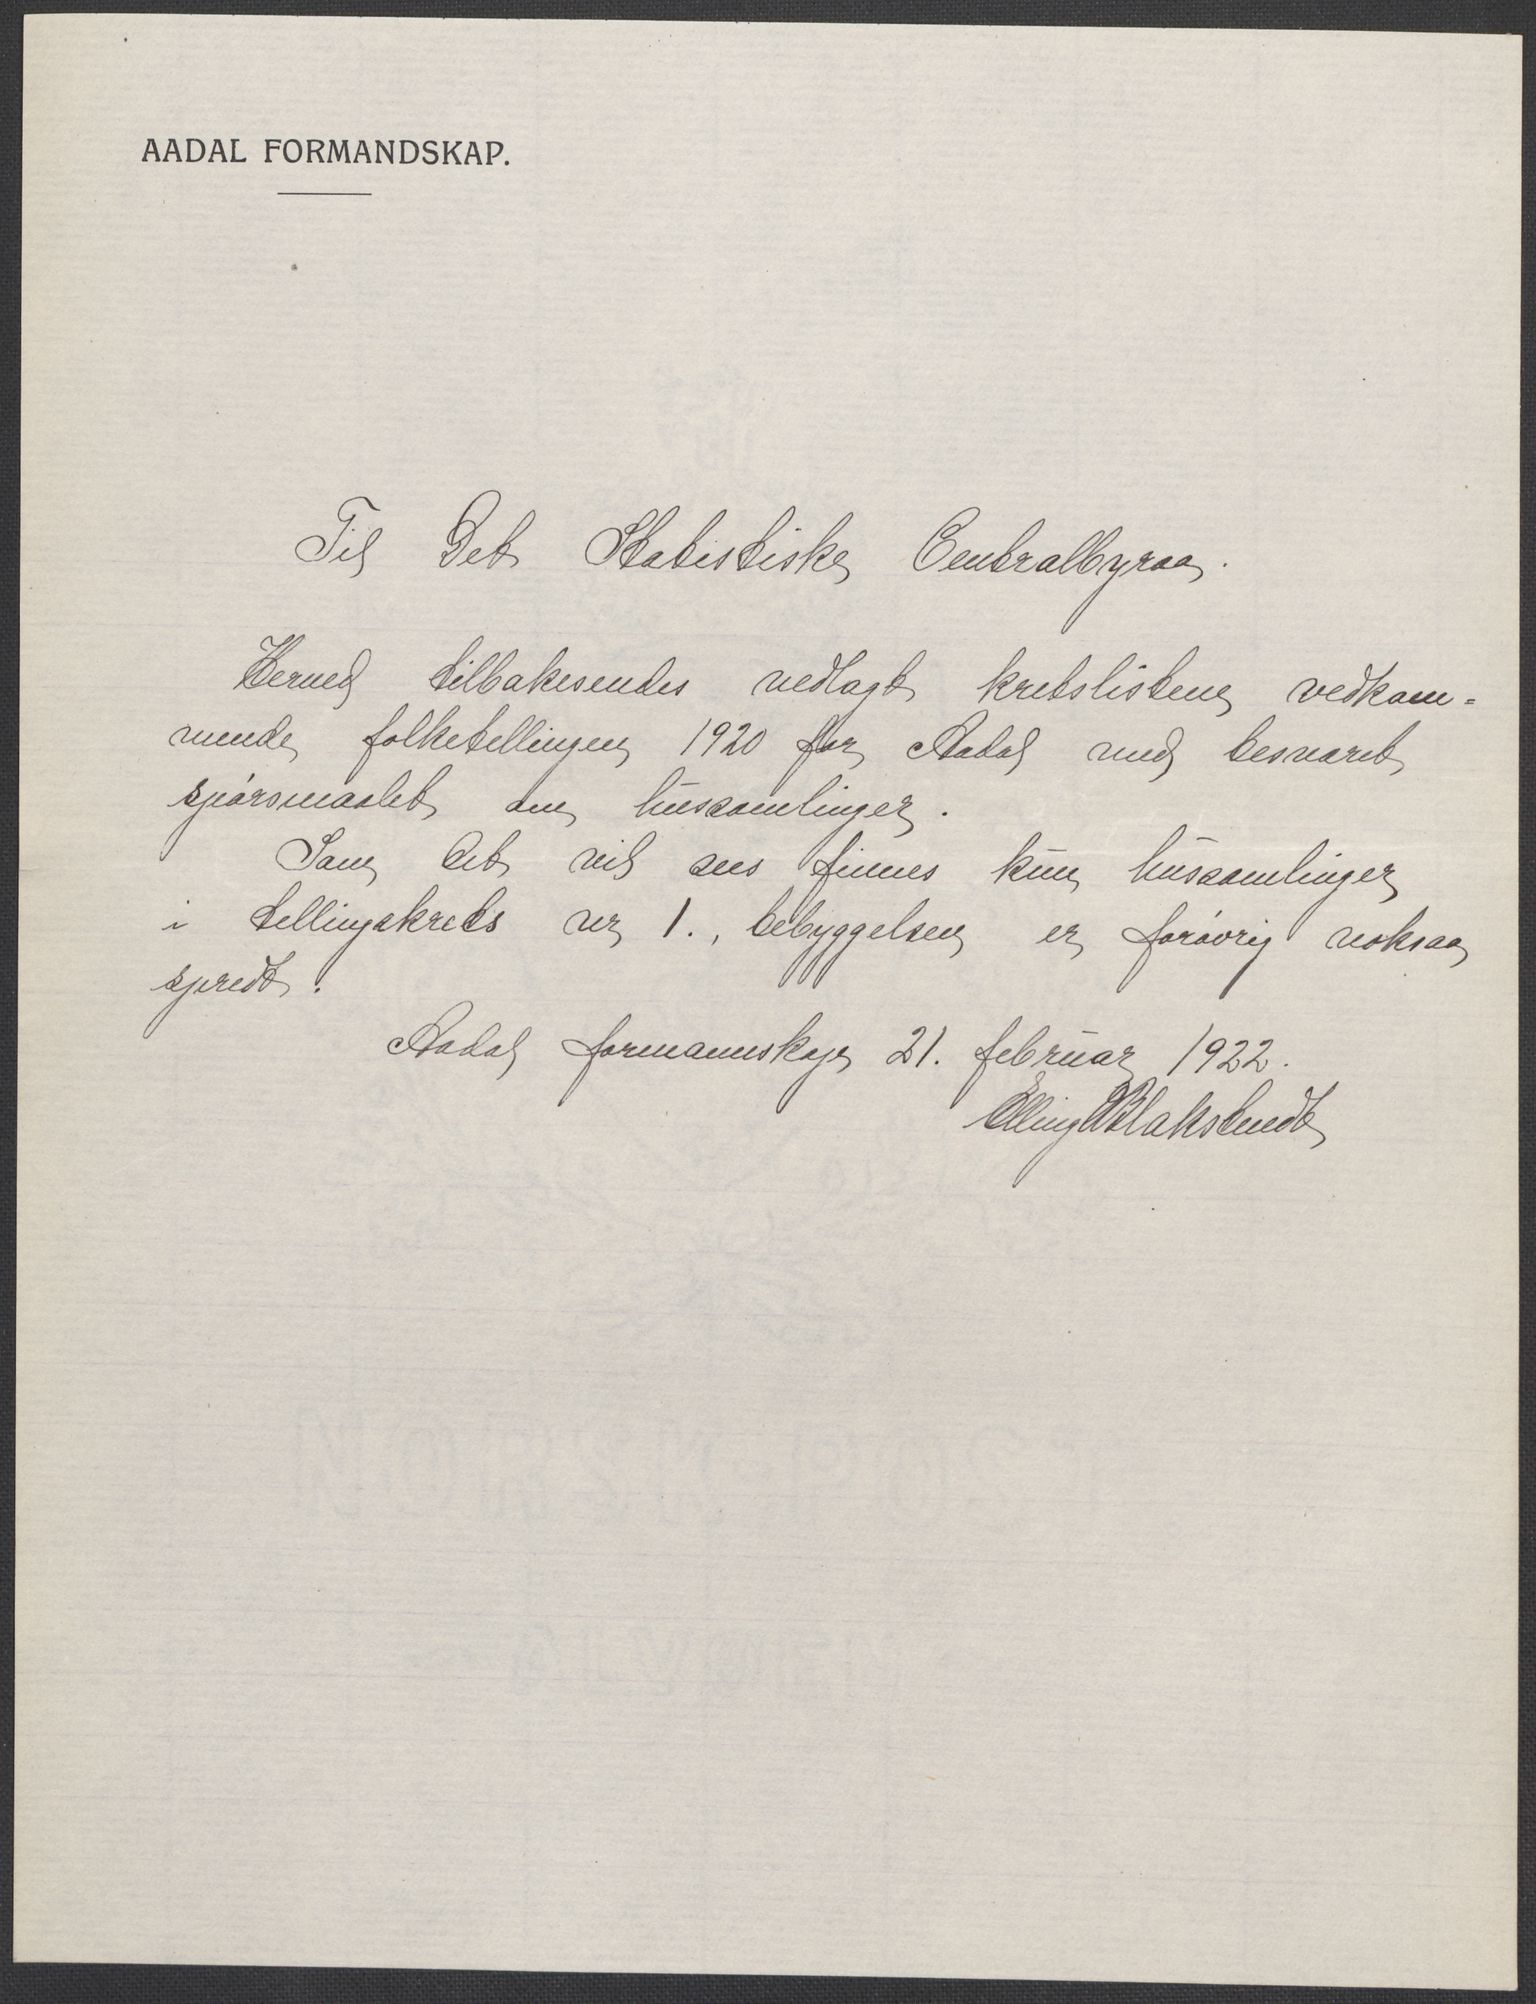 AADAL FORMANDSKAP.
Til Det Statistiske Centralbyraa.
Hermed tilbakesendes vedlagt kretslistene vedkom=
mende folketellingen 1920 for Aadal med besvaret
spørsmaalet om hussamlinger.
Som det vil sees finnes kun hussamlinger
i tellingskrets nr 1., bebyggelsen er forøvrig noksaa
spredt.
Aadal formannskap 21. februar 1922.
Elling Blakstvedt